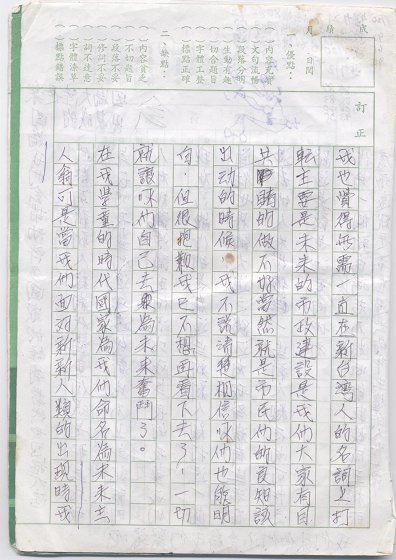 成績
月 日閱
一、優點：
( )內容充實
( )文句流暢
( )段落分明
( )生動有趣
( )切合題旨
( )字體工整
( )標點正確
二、缺點：
( )內容貧乏
( )不切題旨
( )段落不妥
( )修詞不妥
( )詞不達意
( )字體潦草
( )標點錯誤
訂正
我也覺得無需一直在新台灣人的名詞上打
転主要是未來的市政建設是我們大家有目
共睹的做不好當然就是市民們的良知該
出动的時候！我不說清楚相信咪們也能明
白．但很抱歉我已不想再看下去了！一切
就讓咪們自己去為未來奮鬥了。
在我學童的時代國家為我們命名為未來主
人翁可是當我們面對新新人類的出現時我